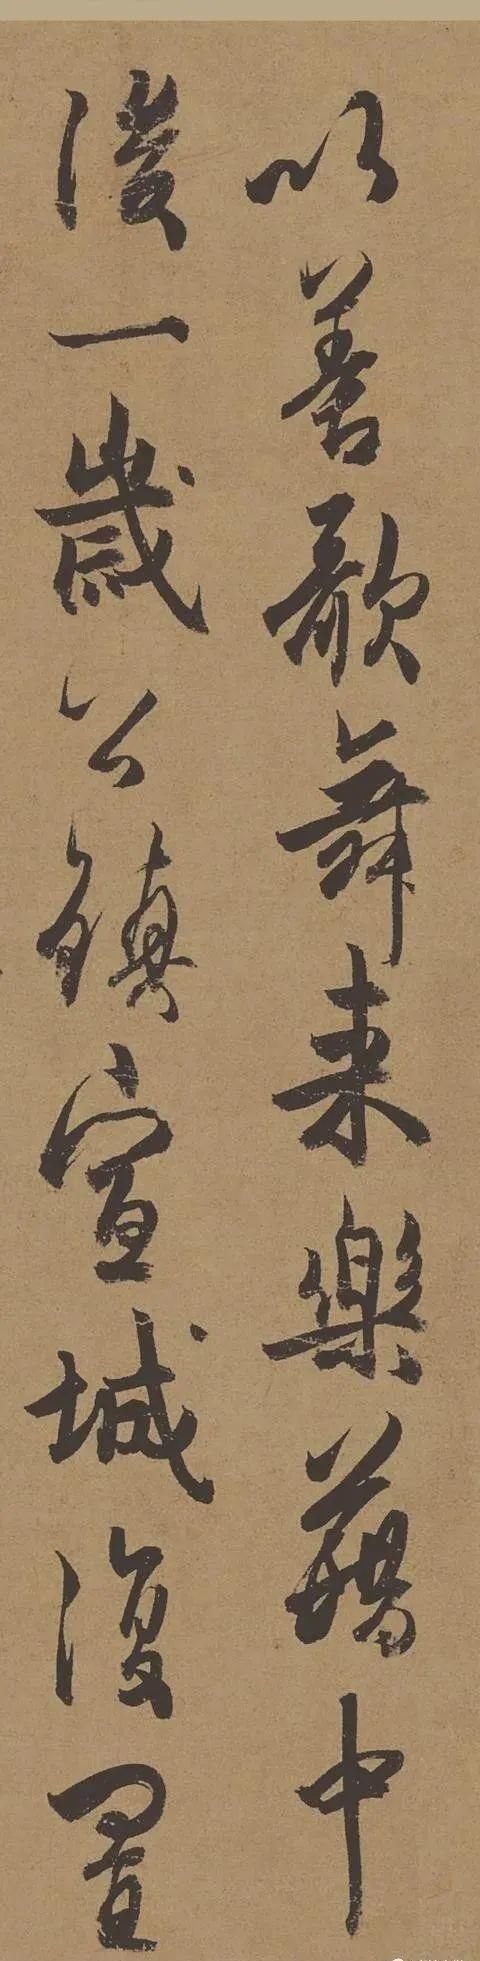 以善歌舞来樂藉中
後一歲公鎮宣城復置